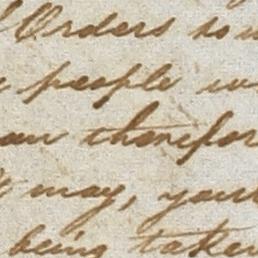 Orders so
people
therefor
may, your
being taken